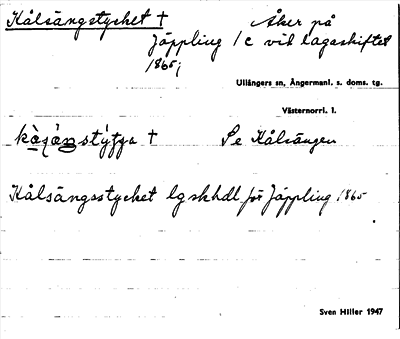 Kålsängstycket † Åker på
Jäppling 1c vid lagaskiftet
1865;
Ullångers sn, Ångermanl. s. doms. tg.
Västernorrl. l.
† Se Kålsängen
Kålsängsstycket lgskhdl för Jäppling 1865
Sven Hiller 1947